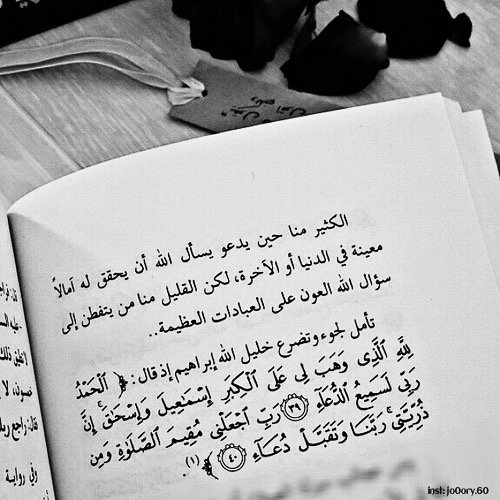 الكثير منا حين يدعو يسأل الله أن يحقق له آمالاً
معينة في الدنيا أو الآخرة، لكن القليل منا من يتفطن إلى
سؤال الله العون على العبادات العظيمة..
تأمل لجوء وتضرع خليل الله إبراهيم إذ قال: ﴿ ٱلْحَمْدُ
لِلَّهِ ٱلَّذِى وَهَبَ لِى عَلَى ٱلْكِبَرِ إِسْمَٰعِيلَ وَإِسْحَٰقَ ۚ إِنَّ
رَبِّى لَسَمِيعُ ٱلدُّعَآءِ ٣٩ رَبِّ ٱجْعَلْنِى مُقِيمَ ٱلصَّلَوٰةِ وَمِن
ذُرِّيَّتِى ۚ رَبَّنَا وَتَقَبَّلْ دُعَآءِ ٤٠ ﴾ (١).
inst: jo0ory.60